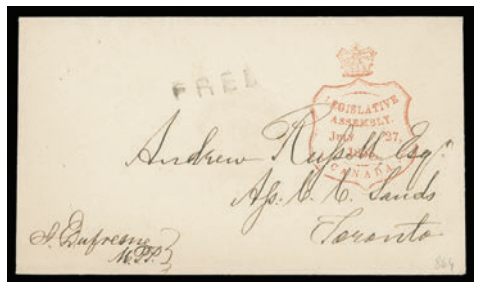 FREE
LEGISLATIVE
ASSEMBLY.
July 27,
CANADA
Andrew Russell Esqr.
Ass. C. C. Lands
Toronto
J. Dufresne
M.P.P.
864